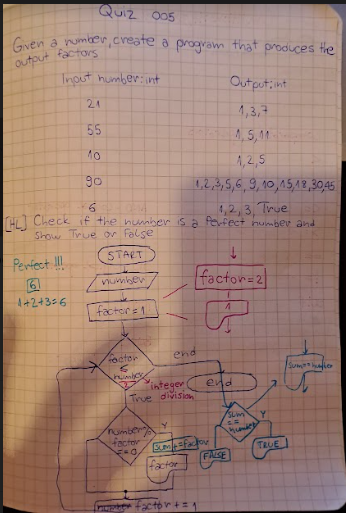 Quiz 005
Given a number, create a program that produces the
output factors
Input number:int
Output:int
21
1,3,7
55
1,5,11
10
1,2,5
90
1,2,3,5,6,9,10,15,18,30,45
6
1,2,3,True
[HL] Check if the number is a Perfect number and
show True or False
Perfect !!!
6
1+2+3=6
START
number
factor=1
factor=2
1
factor
≤
number
2
integer
division
end
end
True
number%
factor
==0
Y
sum+=factor
factor
sum
==
number
Y
FALSE
TRUE
factor+=1